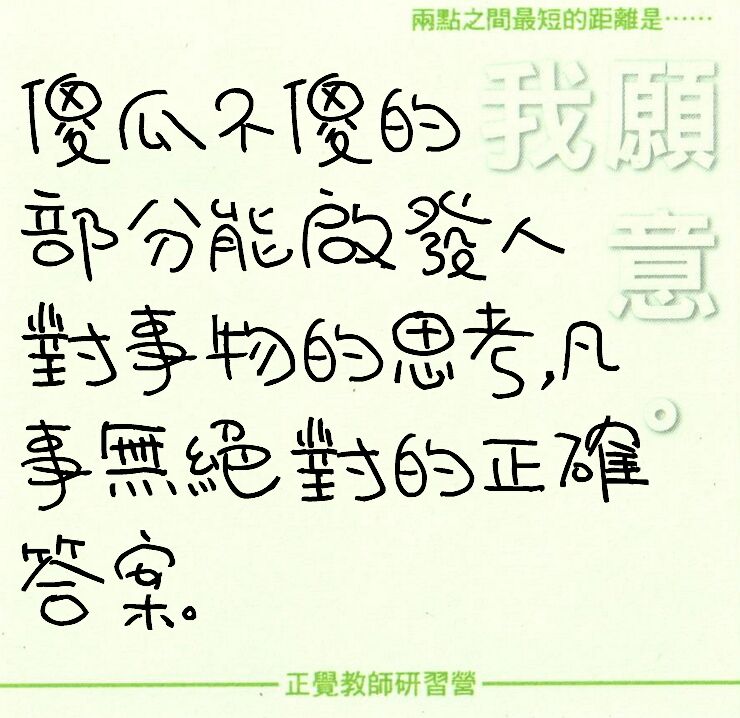 兩點之間最短的距離是……
我願意。
傻瓜不傻的
部分能啟發人
對事物的思考,凡
事無絕對的正確
答案。
正覺教師研習營